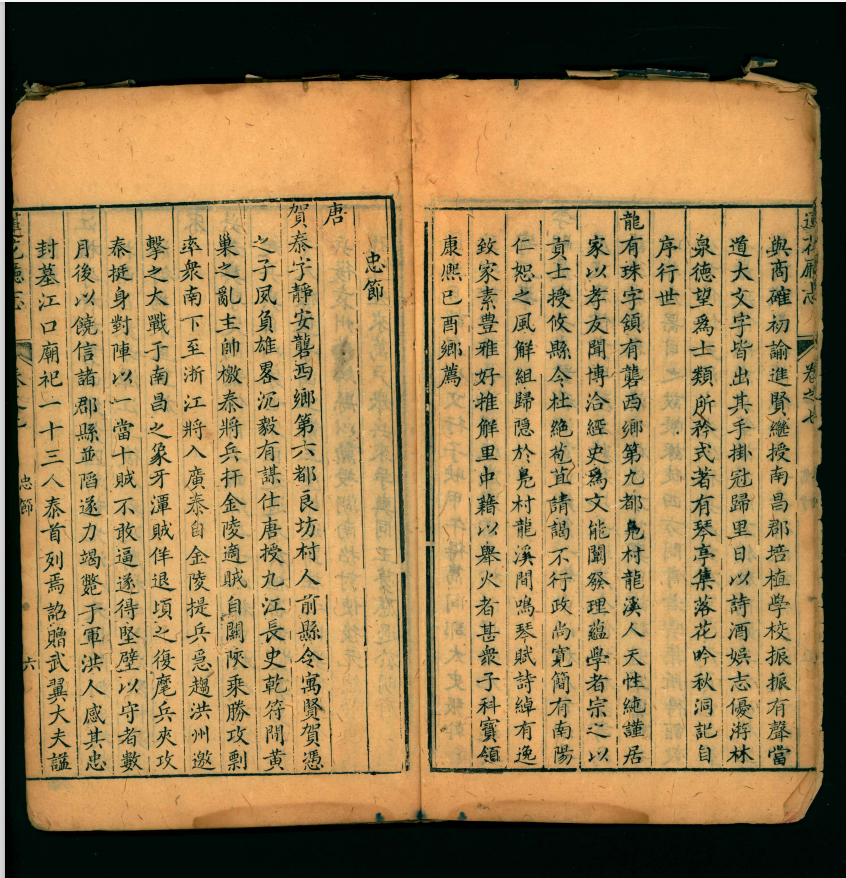 蓮花廳志
卷之七
與商確初諭進賢繼授南昌郡培植學校振振有聲當
道大文字皆出其手掛冠歸里日以詩酒娱志優游林
泉德望爲士類所矜式著有琴亭集落花吟秋洞記自
序行世
龍有珠字頷有礱西鄉第九都鳧村龍溪人天性純謹居
家以孝友聞博洽經史爲文能闡發理蘊學者宗之以
貢士授攸縣令杜絶苞苴請謁不行政尚寬簡有南陽
仁恕之風解組歸隱於鳧村龍溪間鳴琴賦詩綽有逸
致家素豊雅好推解里中藉以舉火者甚衆子科寳領
康熈己酉鄉薦
忠節
唐
賀泰字靜安礱西鄉第六都良坊村人前縣令寓賢賀憑
之子夙負雄畧沉毅有謀仕唐授九江長史乾符間黄
巢之亂主帥檄泰將兵扞金陵適賊自關陝乘勝攻剽
率衆南下至浙江將入廣泰自金陵提兵急趨洪州邀
擊之大戰于南昌之象牙潭賊佯退頃之復麾兵夾攻
泰挺身對陣以一當十賊不敢逼遂得堅壁以守者數
月後以饒信諸郡縣並陷遂力竭斃于軍洪人感其忠
封墓江口廟祀一十三人泰首列焉詔贈武翼大夫諡
蓮花廳志
忠節
六